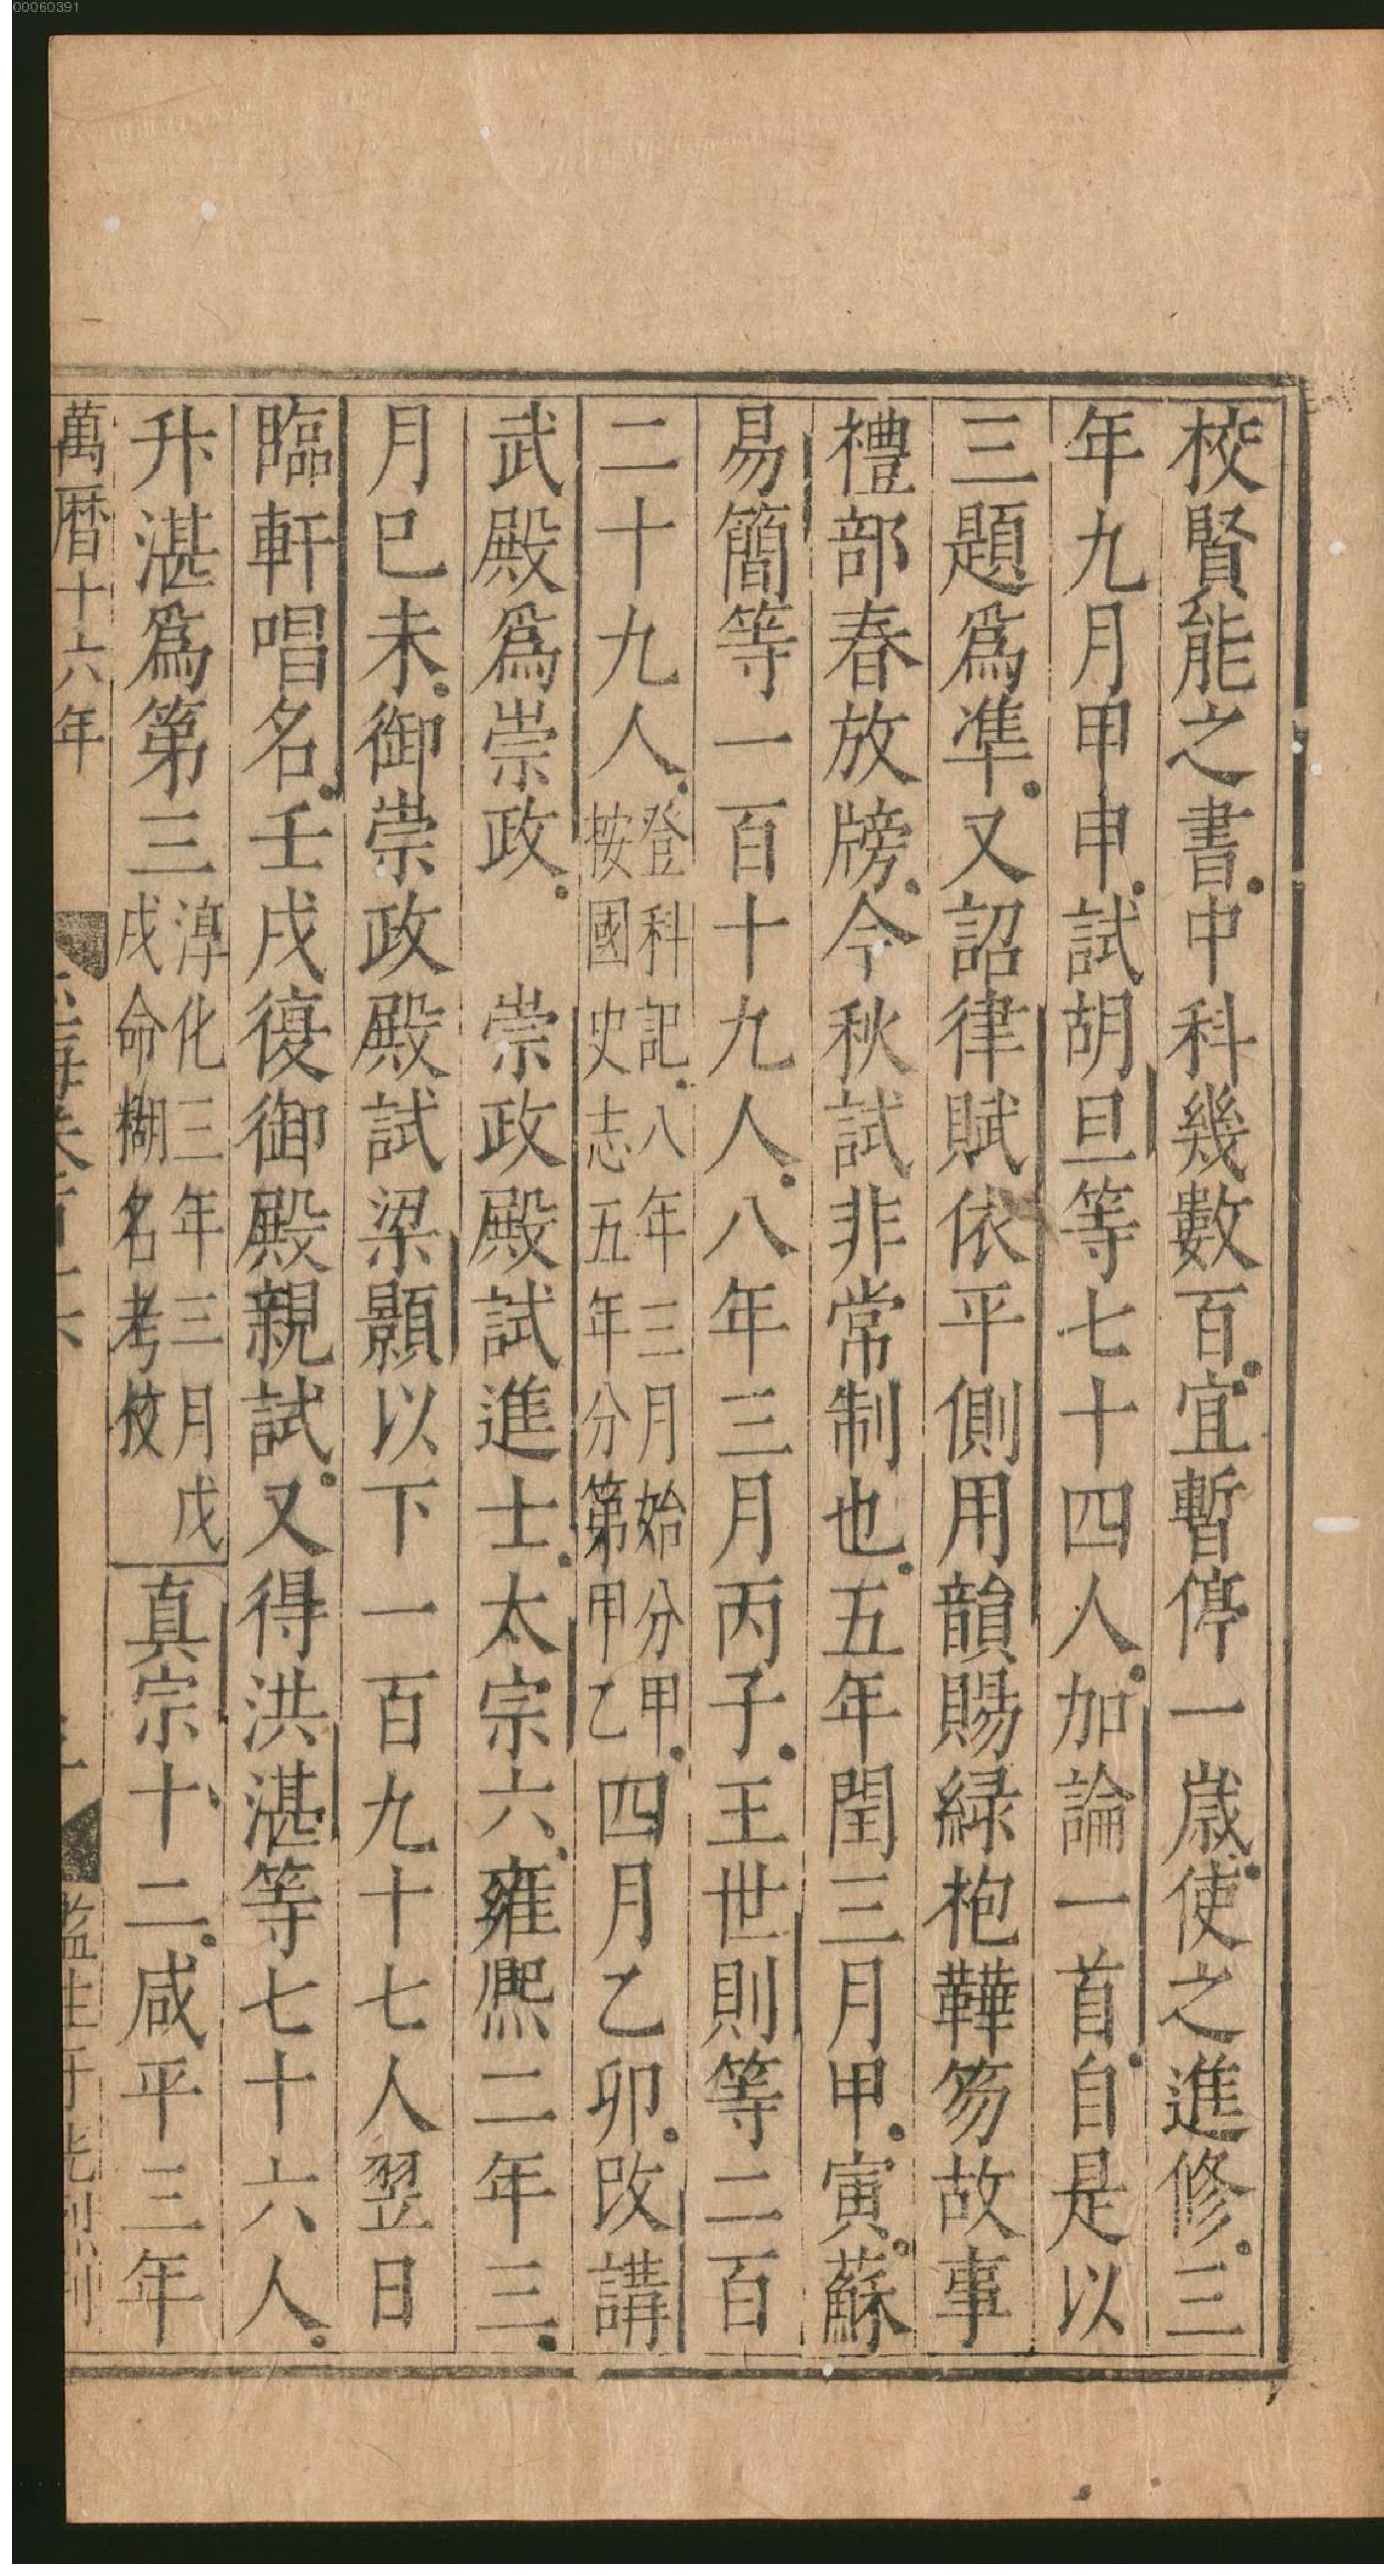 00060391
校賢能之書中科幾數百宜暫停一歲使之進修三
年九月甲申試胡旦等七十四人加論一首自是以
三題爲準又詔律賦依平側用韻賜緑袍鞾笏故事
禮部春放牓今秋試非常制也五年閏三月甲寅蘇
易簡等一百十九人八年三月丙子王世則等二百
二十九人登科記八年三月始分甲按國史志五年分第甲乙四月乙卯改講
武殿爲崇政 崇政殿試進士太宗六雍熙二年三
月巳未御崇政殿試梁顥以下一百九十七人翌日
臨軒唱名壬戌復御殿親試又得洪湛等七十六人
升湛爲第三淳化三年三月戊戌命糊名考校真宗十二咸平三年
萬曆十六年